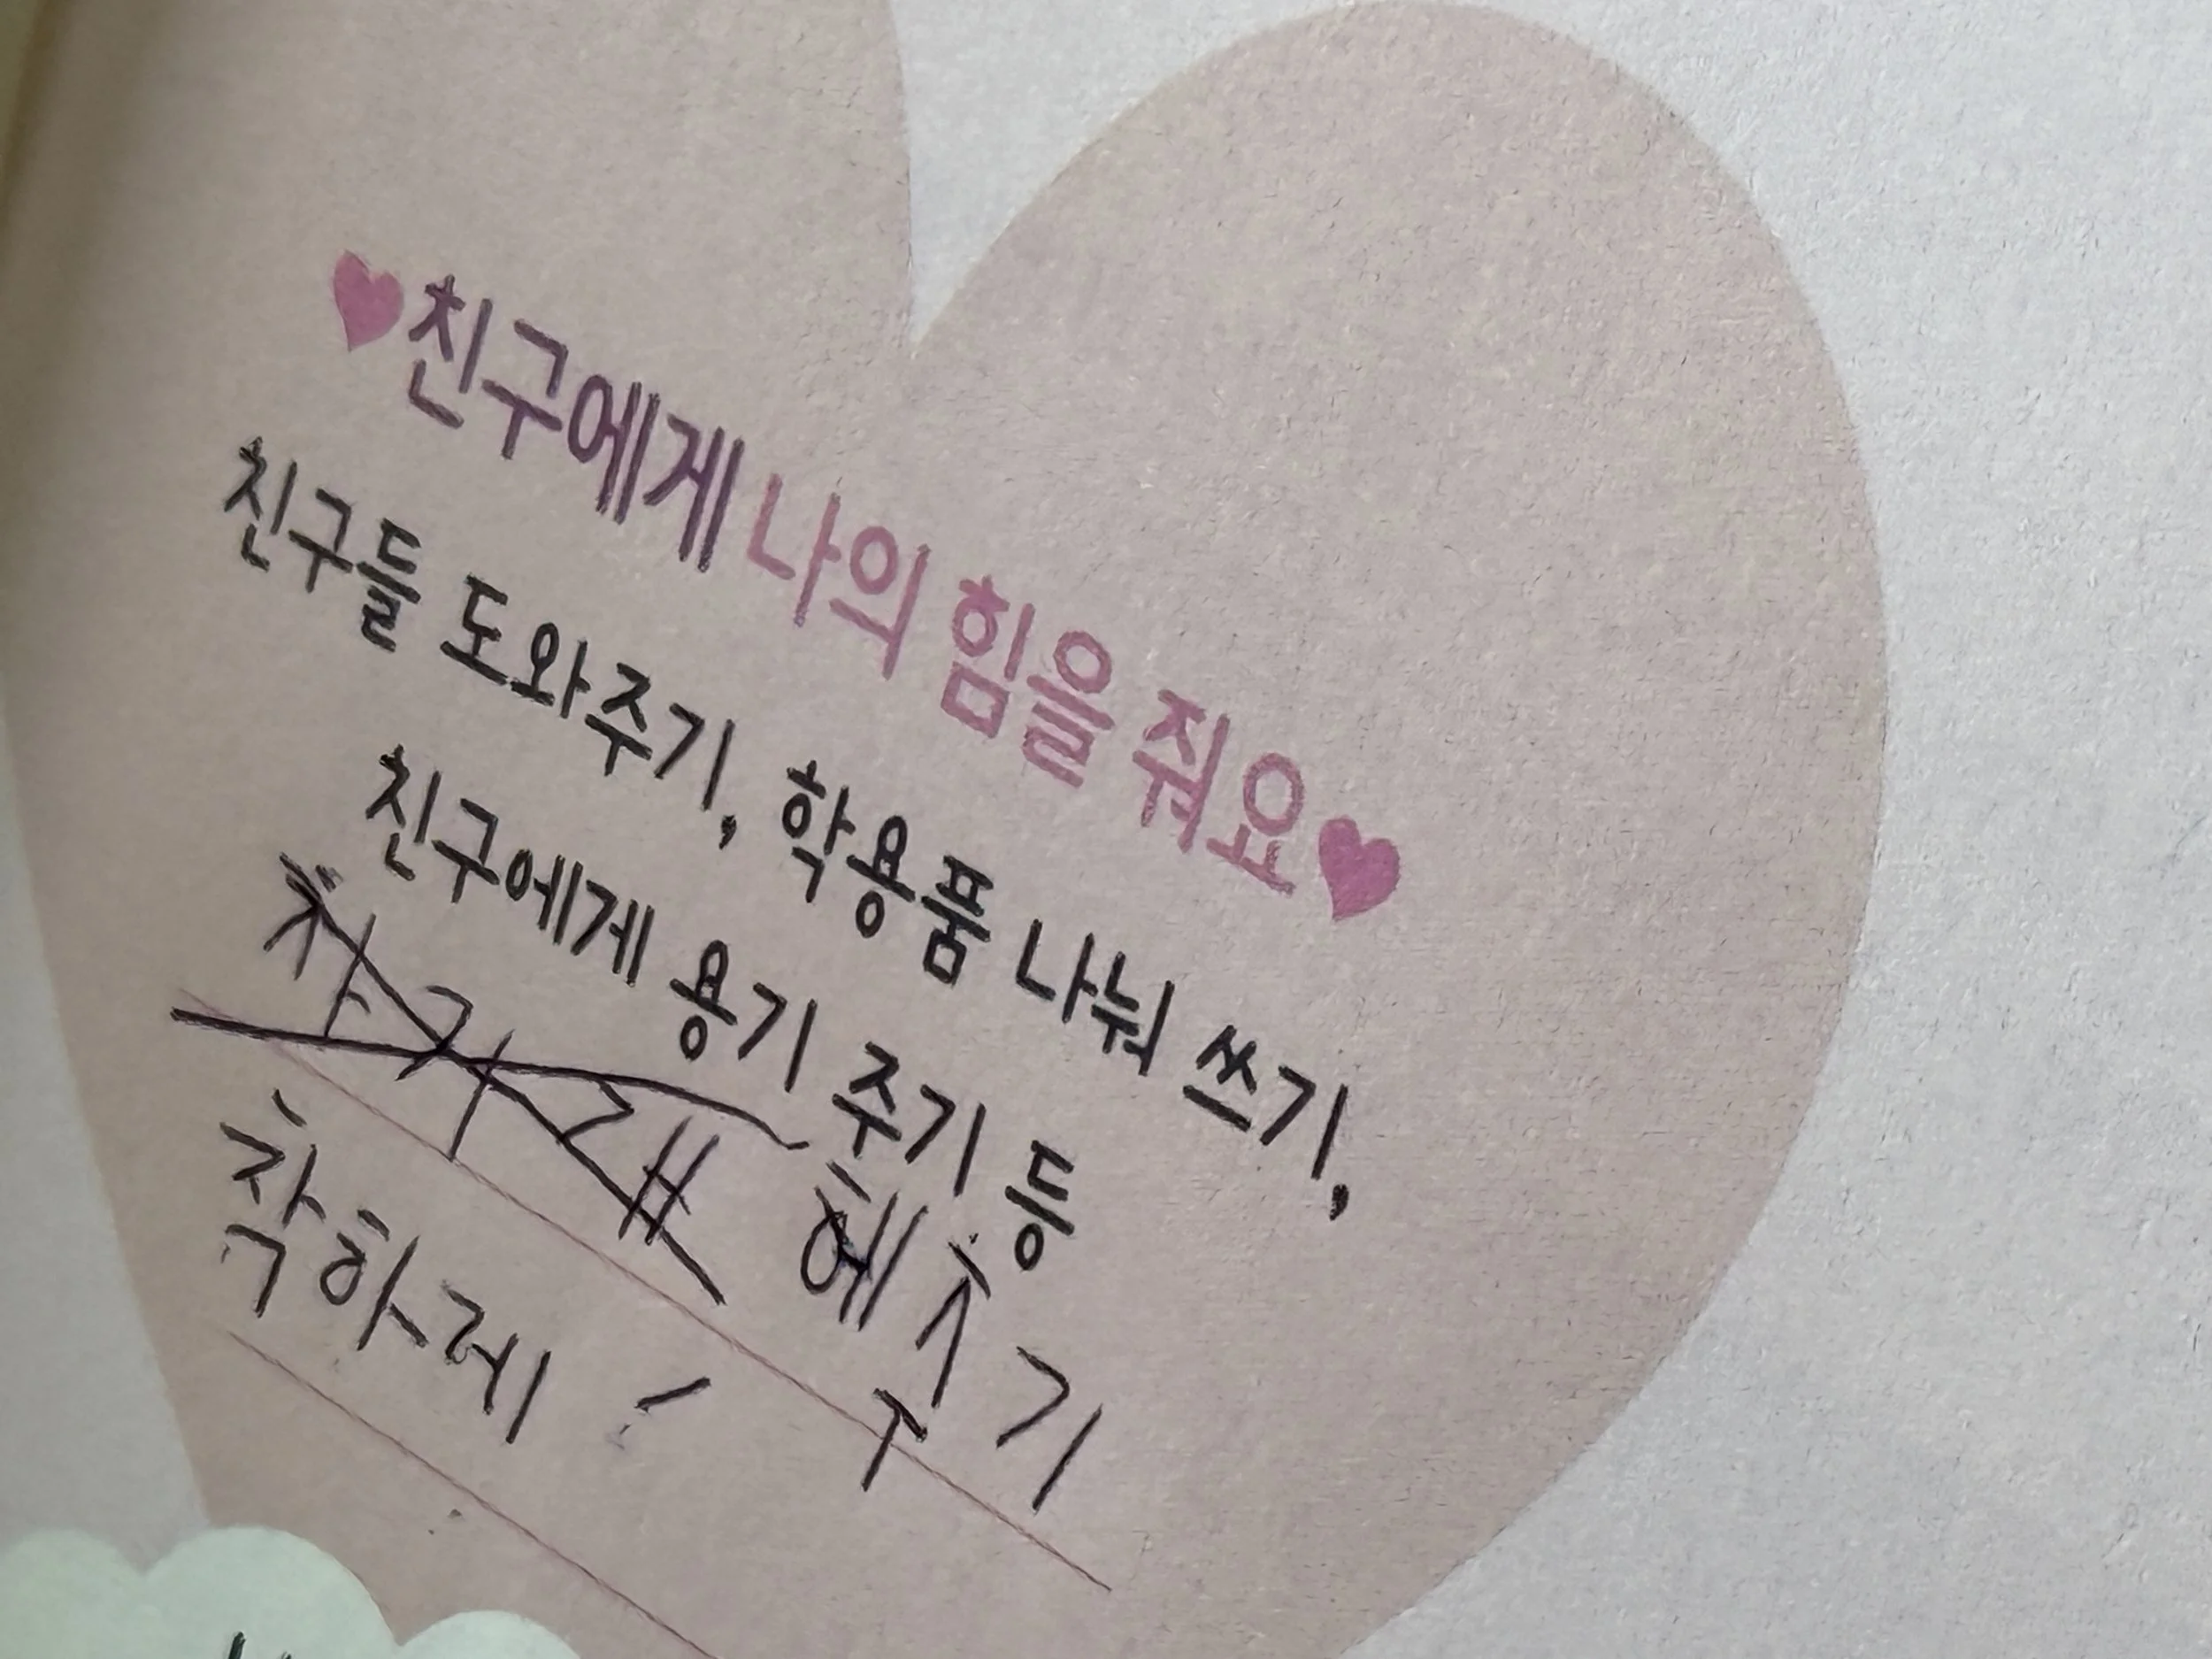 ♥친구에게 나의 힘을 줘요♥
친구들 도와주기, 학용품 나눠 쓰기,
친구에게 용기 주기 등
착하레 헤주기